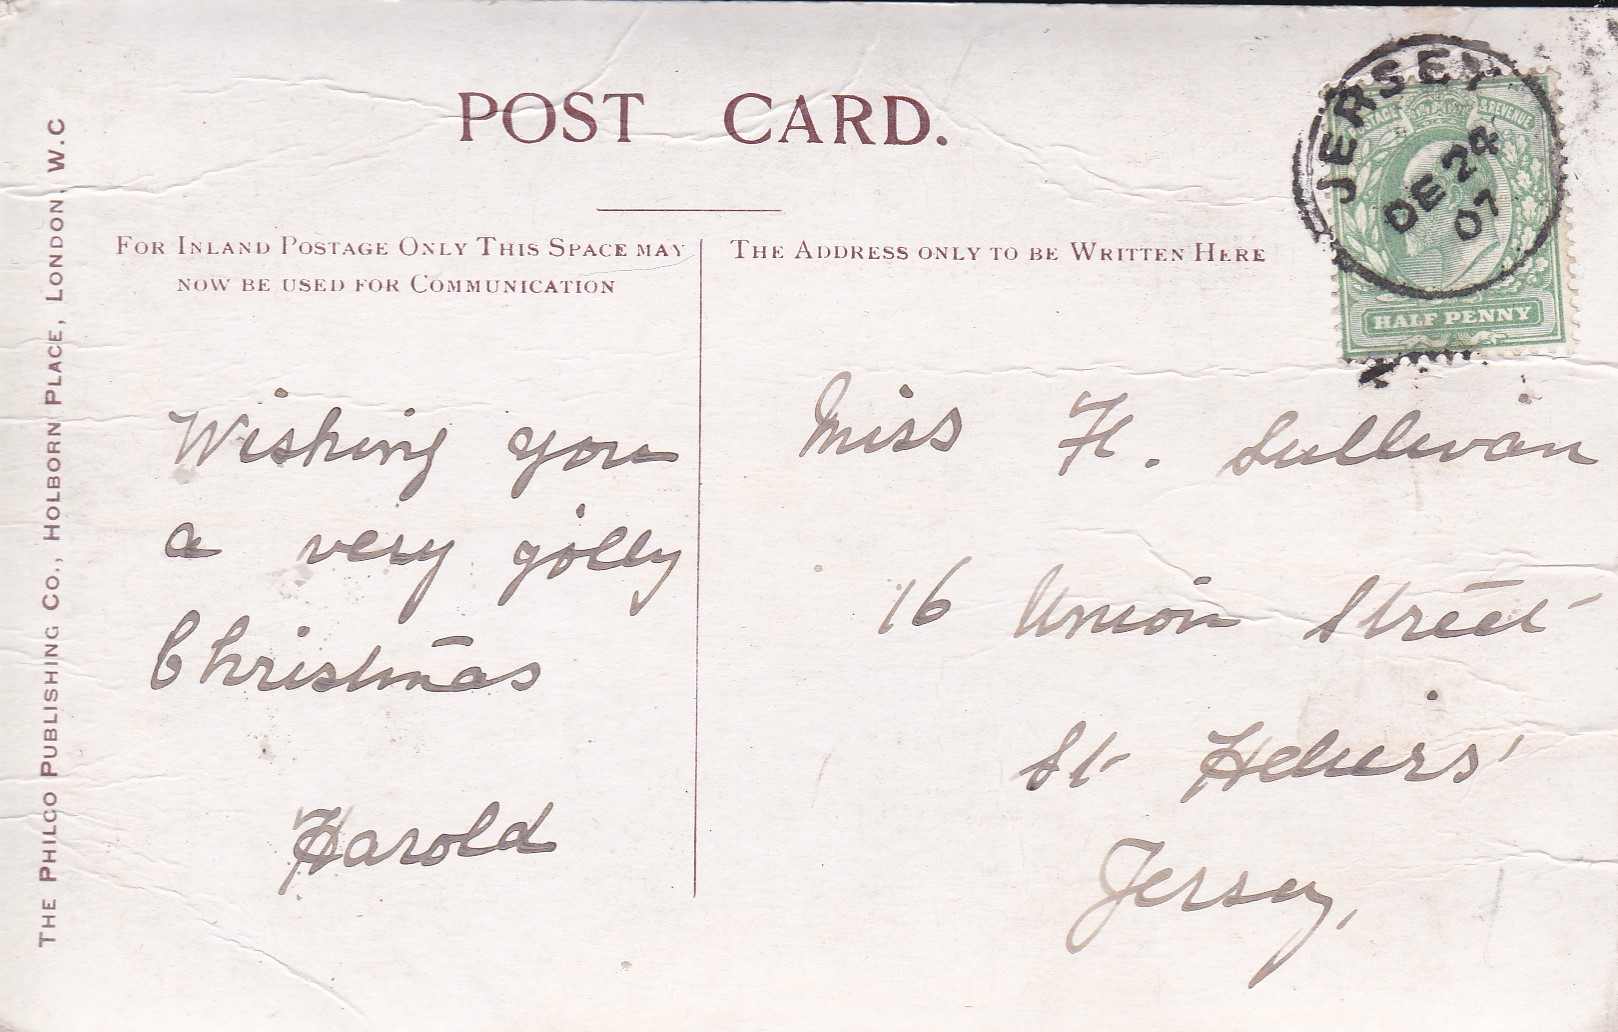 POST CARD.
FOR INLAND POSTAGE ONLY THIS SPACE MAY
NOW BE USED FOR COMMUNICATION
THE ADDRESS ONLY TO BE WRITTEN HERE
THE PHILCO PUBLISHING CO., HOLBORN PLACE, LONDON. W.C
JERSEY
DE 24
07
POSTAGE & REVENUE
HALF PENNY
Wishing you
a very jolly
Christmas
Harold
Miss H. Sullivan
16 Union Street
St Heliers'
Jersey,